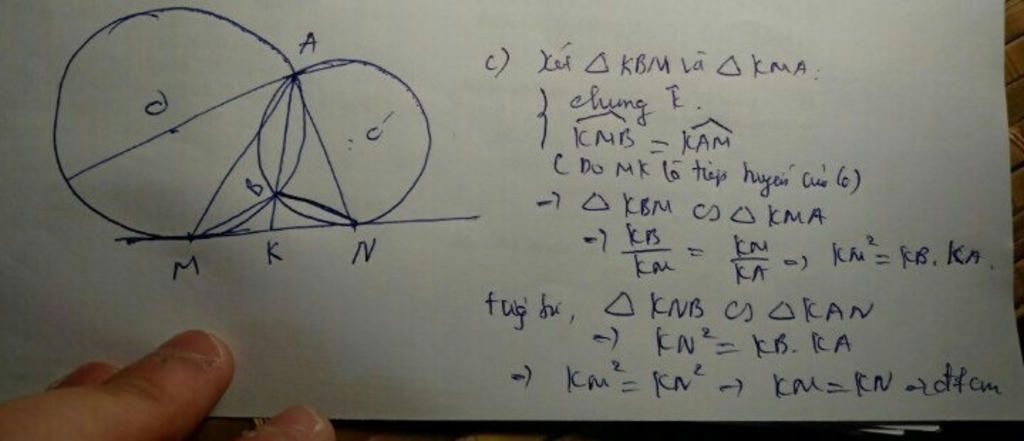 A
O
O'
B
M K N
c) Xét △ KBM và △ KMA:
{ chung K̂.
$\widehat{KMB} = \widehat{KAM}$
( Do MK là tiếp tuyến của (O)
→ △ KBM ∽ △ KMA
→ $\frac{KB}{KM} = \frac{KM}{KA}$ → KM² = KB. KA.
tương tự, △ KNB ∽ △ KAN
→ KN² = KB. KA
→ KM² = KN² → KM = KN → đfcm